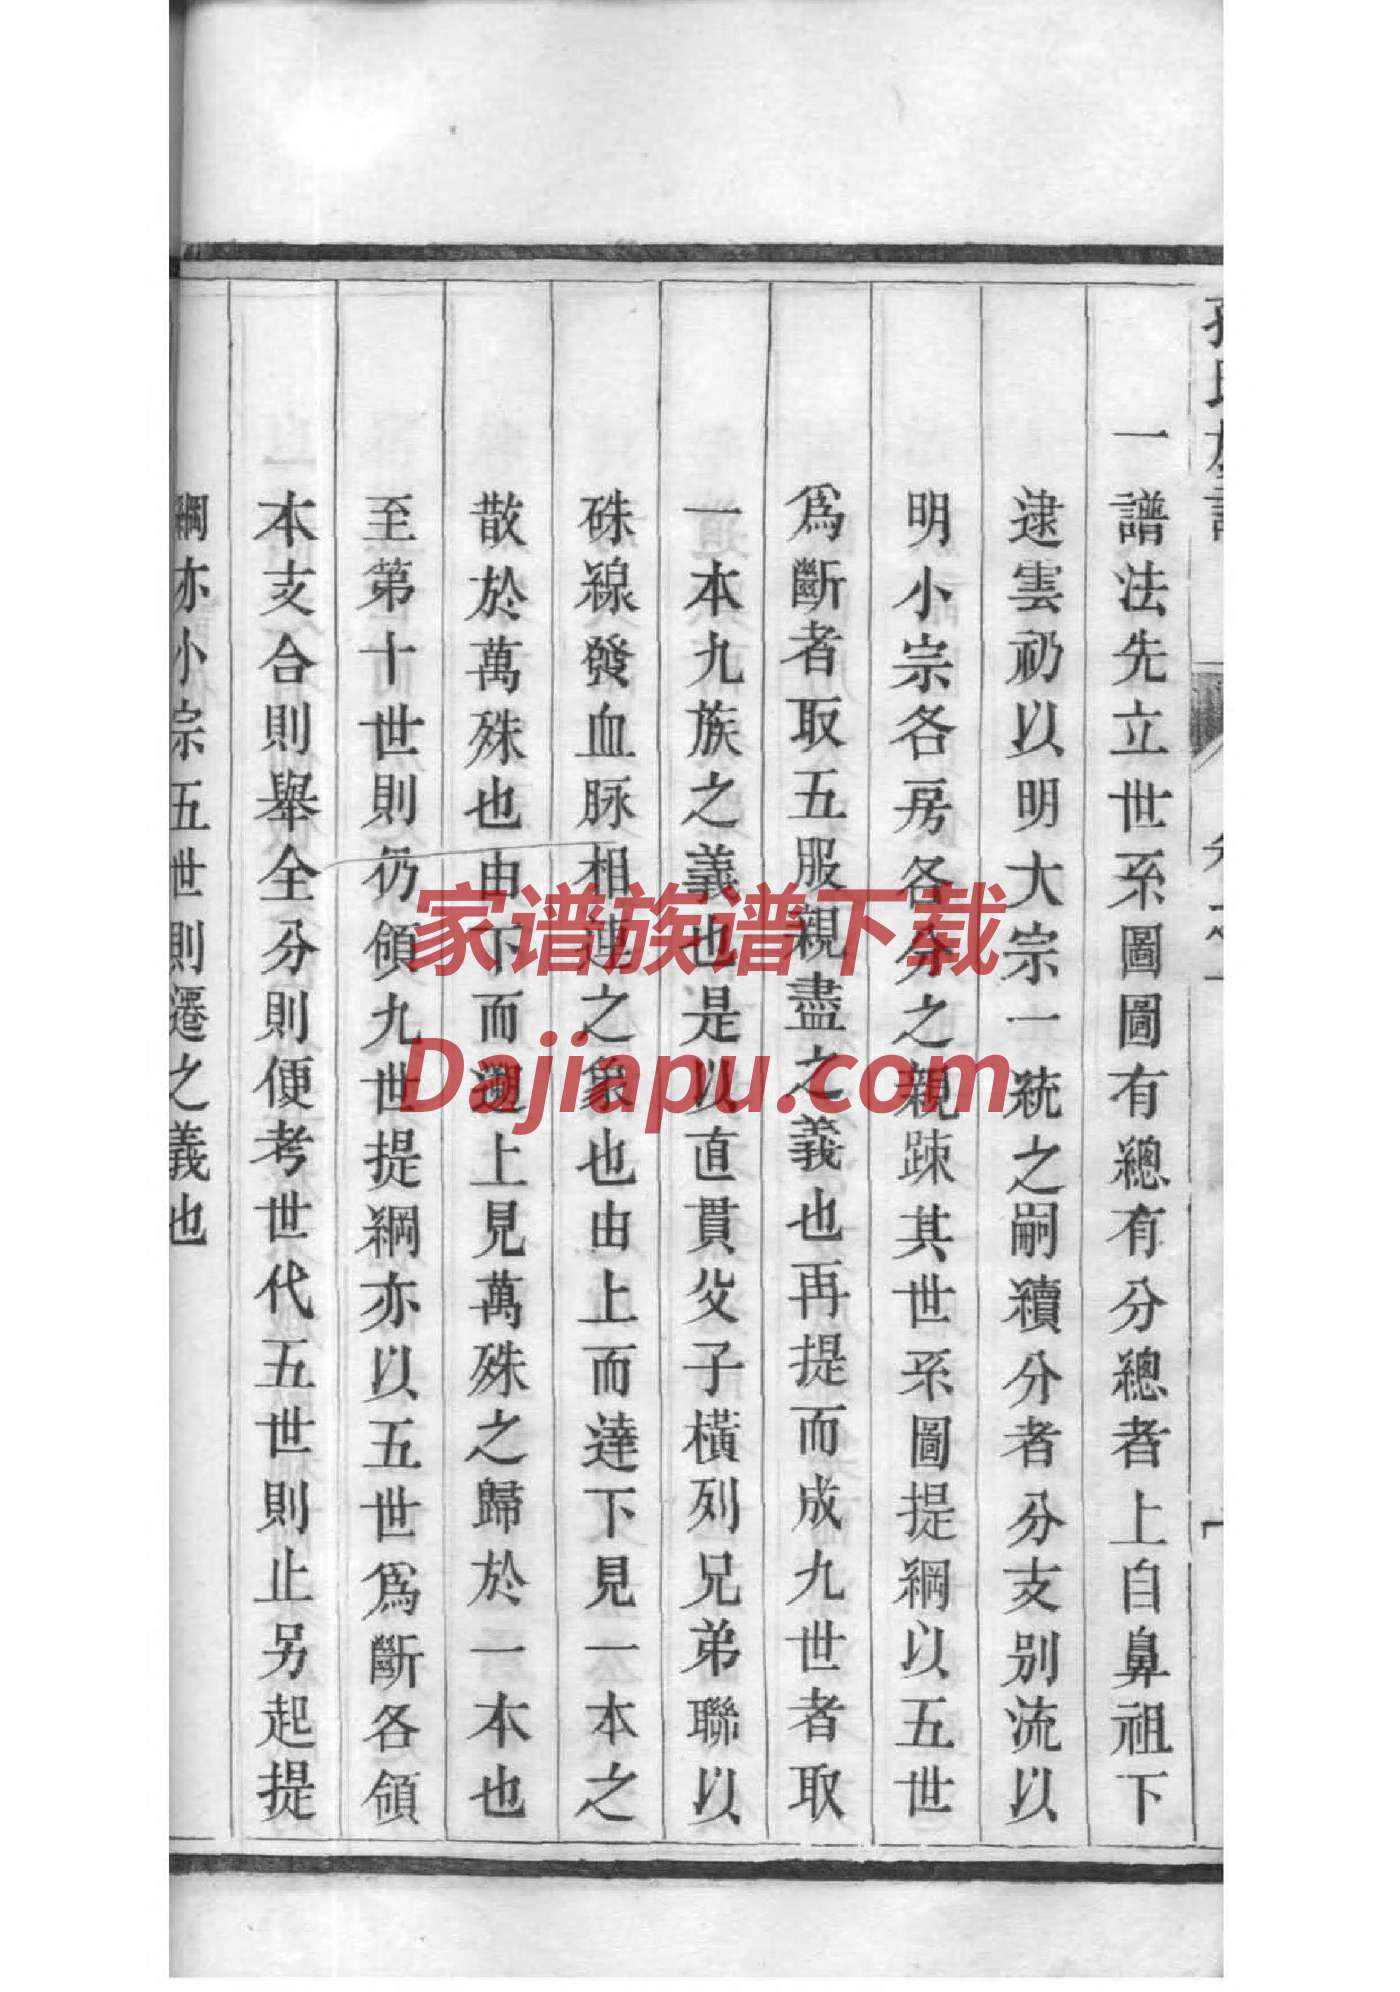 孫氏族譜
卷之一
一譜法先立世系圖圖有總有分總者上自鼻祖下
逮雲礽以明大宗一統之嗣續分者分支别流以
明小宗各房各分之親疎其世系圖提綱以五世
爲斷者取五服親盡之義也再提而成九世者取
一本九族之義也是以直貫父子橫列兄弟聯以
硃線發血脉相連之象也由上而達下見一本之
散於萬殊也由下而遡上見萬殊之歸於一本也
至第十世則仍領九世提綱亦以五世爲斷各領
本支合則舉全分則便考世代五世則止另起提
綱亦小宗五世則遷之義也
家谱族谱下载
Dajiapu.com